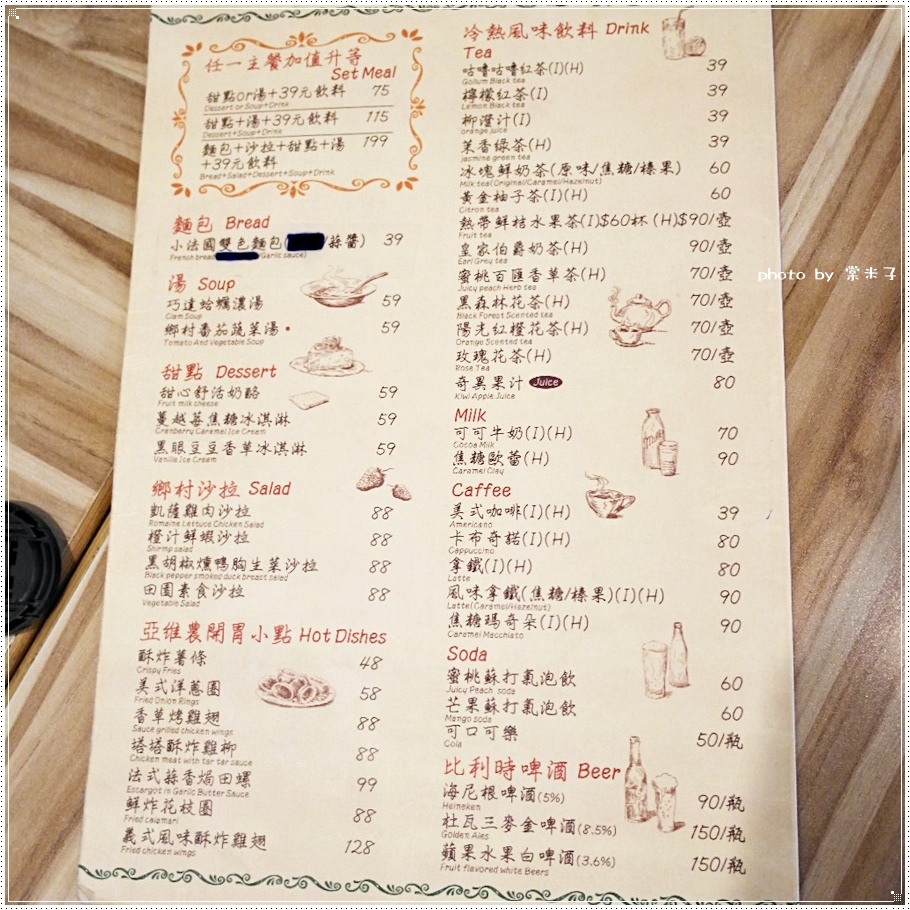 任一主餐加值升等
Set Meal
甜點or湯+39元飲料 75
Dessert or Soup+Drink
甜點+湯+39元飲料 115
Dessert+Soup+Drink
麵包+沙拉+甜點+湯 199
+39元飲料
Bread+Salad+Dessert+Soup+Drink
麵包 Bread
小法國雙色麵包( /蒜醬) 39
French bread /Garlic sauce)
湯 Soup
巧達蛤蠣濃湯 59
Clam Soup
鄉村番茄蔬菜湯• 59
Tomato And Vegetable Soup
甜點 Dessert
甜心舒活奶酪 59
Fruit milk cheese
蔓越莓焦糖冰淇淋 59
Cranberry Caramel Ice Cream
黑眼豆豆香草冰淇淋 59
Vanilla Ice Cream
鄉村沙拉 Salad
凱薩雞肉沙拉 88
Romaine Lettuce Chicken Salad
橙汁鮮蝦沙拉 88
Shrimp salad
黑胡椒燻鴨胸生菜沙拉 88
Black pepper smoked duck breast salad
田園素食沙拉 88
Vegetable Salad
亞維農開胃小點 Hot Dishes
酥炸薯條 48
Crispy Fries
美式洋蔥圈 58
Fried Onion Rings
香草烤雞翅 88
Sauce grilled chicken wings
塔塔酥炸雞柳 88
Chicken meat with tar tar sauce
法式蒜香焗田螺 99
Escargot in Garlic Butter Sauce
鮮炸花枝圈 88
Fried calamari
義式風味酥炸雞翅 128
Fried chicken wings
冷熱風味飲料 Drink
Tea
咕嚕咕嚕紅茶(I)(H) 39
Gollum Black tea
檸檬紅茶(I) 39
Lemon Black tea
柳澄汁(I) 39
orange juice
茉香綠茶(H) 39
jasmine green tea
冰塊鮮奶茶(原味/焦糖/榛果) 60
Milk tea(Original/Caramel/Hazelnut)
黃金柚子茶(I)(H) 60
Citron tea
熱帶鮮桔水果茶(I)$60杯 (H)$90/壺
Fruit tea
皇家伯爵奶茶(H) 90/壺
Earl Grey tea
蜜桃百匯香草茶(H) 70/壺
Juicy peach Herb tea
黑森林花茶(H) 70/壺
Black Forest Scented tea
陽光紅橙花茶(H) 70/壺
Orange Scented tea
玫瑰花茶(H) 70/壺
Rose Tea
奇異果汁 Juice 80
Kiwi Apple Juice
Milk
可可牛奶(I)(H) 70
Cocoa Milk
焦糖歐蕾(H) 90
Caramel Olay
Caffee
美式咖啡(I)(H) 39
Americano
卡布奇諾(I)(H) 80
Cappuccino
拿鐵(I)(H) 80
Latte
風味拿鐵(焦糖/榛果)(I)(H) 90
Latte(Caramel/Hazelnut)
焦糖瑪奇朵(I)(H) 90
Caramel Macchiato
Soda
蜜桃蘇打氣泡飲 60
Juicy Peach soda
芒果蘇打氣泡飲 60
Mango soda
可口可樂 50/瓶
Cola
比利時啤酒 Beer
海尼根啤酒(5%) 90/瓶
Heineken
杜瓦三麥金啤酒(8.5%) 150/瓶
Golden Ales
蘋果水果白啤酒(3.6%) 150/瓶
Fruit flavored white Beers
photo by 棠米子